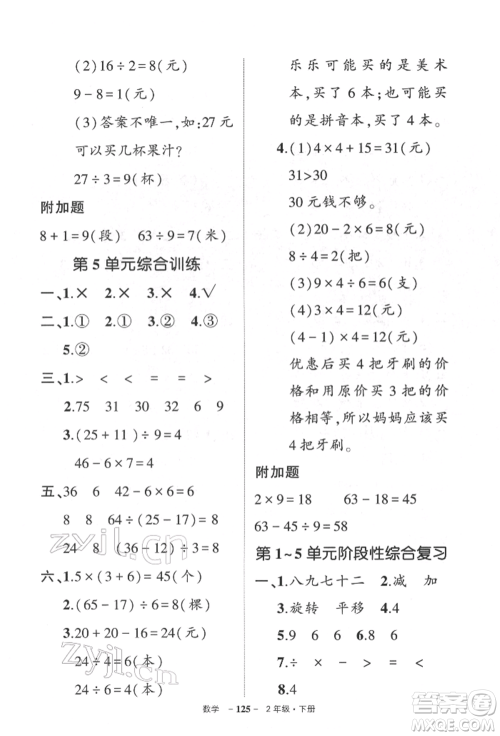 (2)16÷2=8(元)
9-8=1(元)
(3)答案不唯一,如:27元
可以买几杯果汁?
27÷3=9(杯)
附加题
8+1=9(段) 63÷9=7(米)
第5单元综合训练
一、1.× 2.× 3.× 4.√
二、1.① 2.① 3.② 4.③
5.②
三、1.> < = = >
2.75 31 30 32 6 9
3.(25+11)÷9=4
46-6×7=4
五、36 6 42-6×6=6
8 8 (25-17)÷8=1
24 8 (36-12)÷3=8
六、1.5×(3+6)=45(个)
2.(18+24)÷7=6(棵)
3.20+20-16=24(本)
24÷4=6(本)
24÷6=4(本)
乐乐可能买的是美术
本,买了6本;也可能买
的是拼音本,买了4本。
4.(1)4×4+15=31(元)
31>30
30元钱不够。
(2)20-2×6=8(元)
8÷4=2(把)
(3)(22-4)÷3=6(支)
(4)3×4=12(元)
(5-2)×4=12(元)
优惠后买4把牙刷的价
格和用原价买3把的价
格相等,所以妈妈应该买
4把牙刷。
附加题
2×9=18 63-18=45
63-45÷9=58
第1~5单元阶段性综合复习
一、1.八九七十二 2.减 加
3.旋转 平移 4.4
5.9 6 6 6.8
7.> < > =
8.4
数学 -125- 2年级·下册
zyjl.cn
答案圈